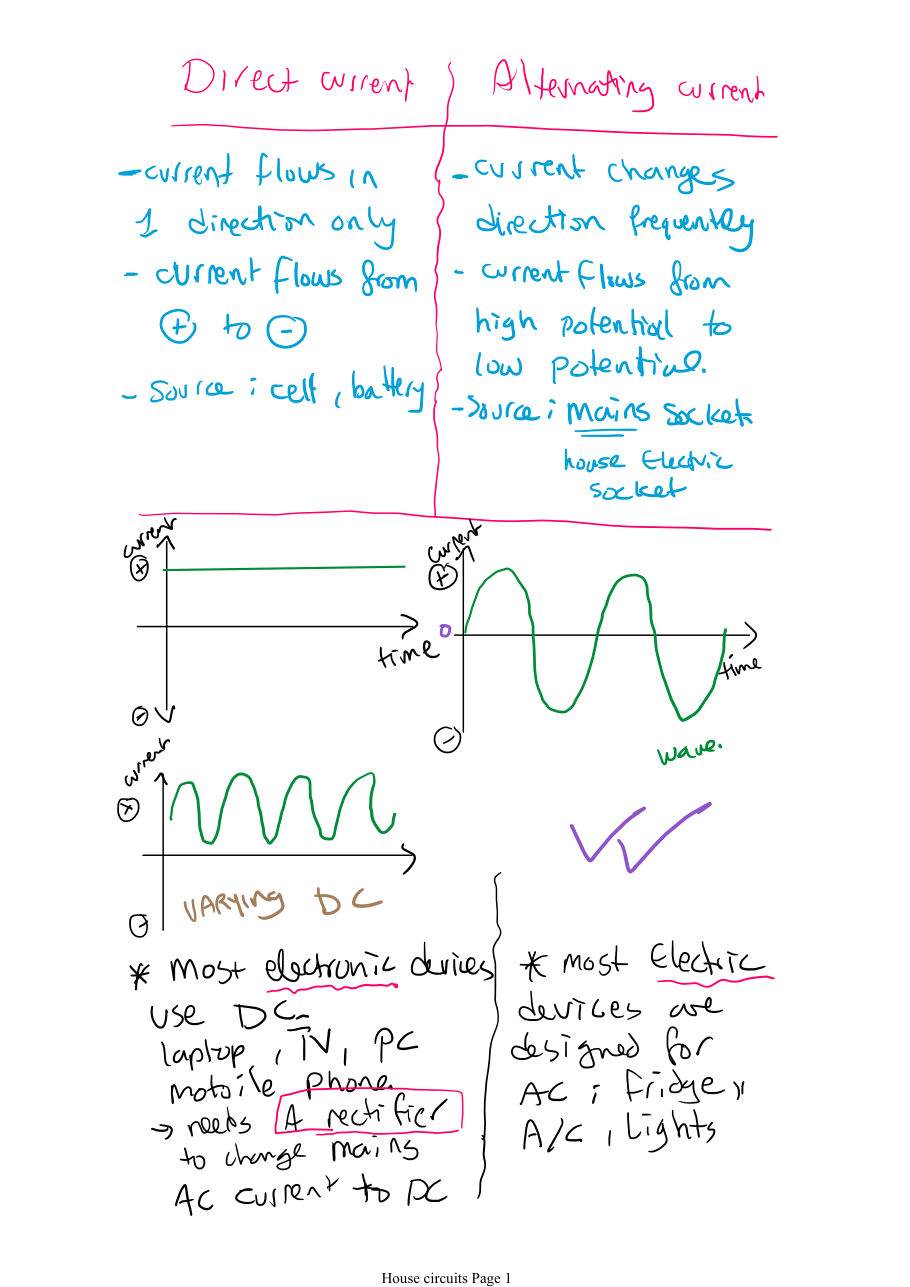 Direct current
Alternating current
- current flows in
1 direction only
- current flows from
+ to -
- Source : cell , battery
- current changes
direction frequently
- current flows from
high potential to
low potential.
- Source : mains socket
house Electric
socket
current
+
time
-
current
+
0
time
-
wave.
current
+
-
VARYING DC
* most electronic devices
use DC
laptop , TV , PC
mobile phone
→ needs A rectifier
to change mains
AC current to DC
* most Electric
devices are
designed for
AC ; fridge,
A/C , Lights
House circuits Page 1